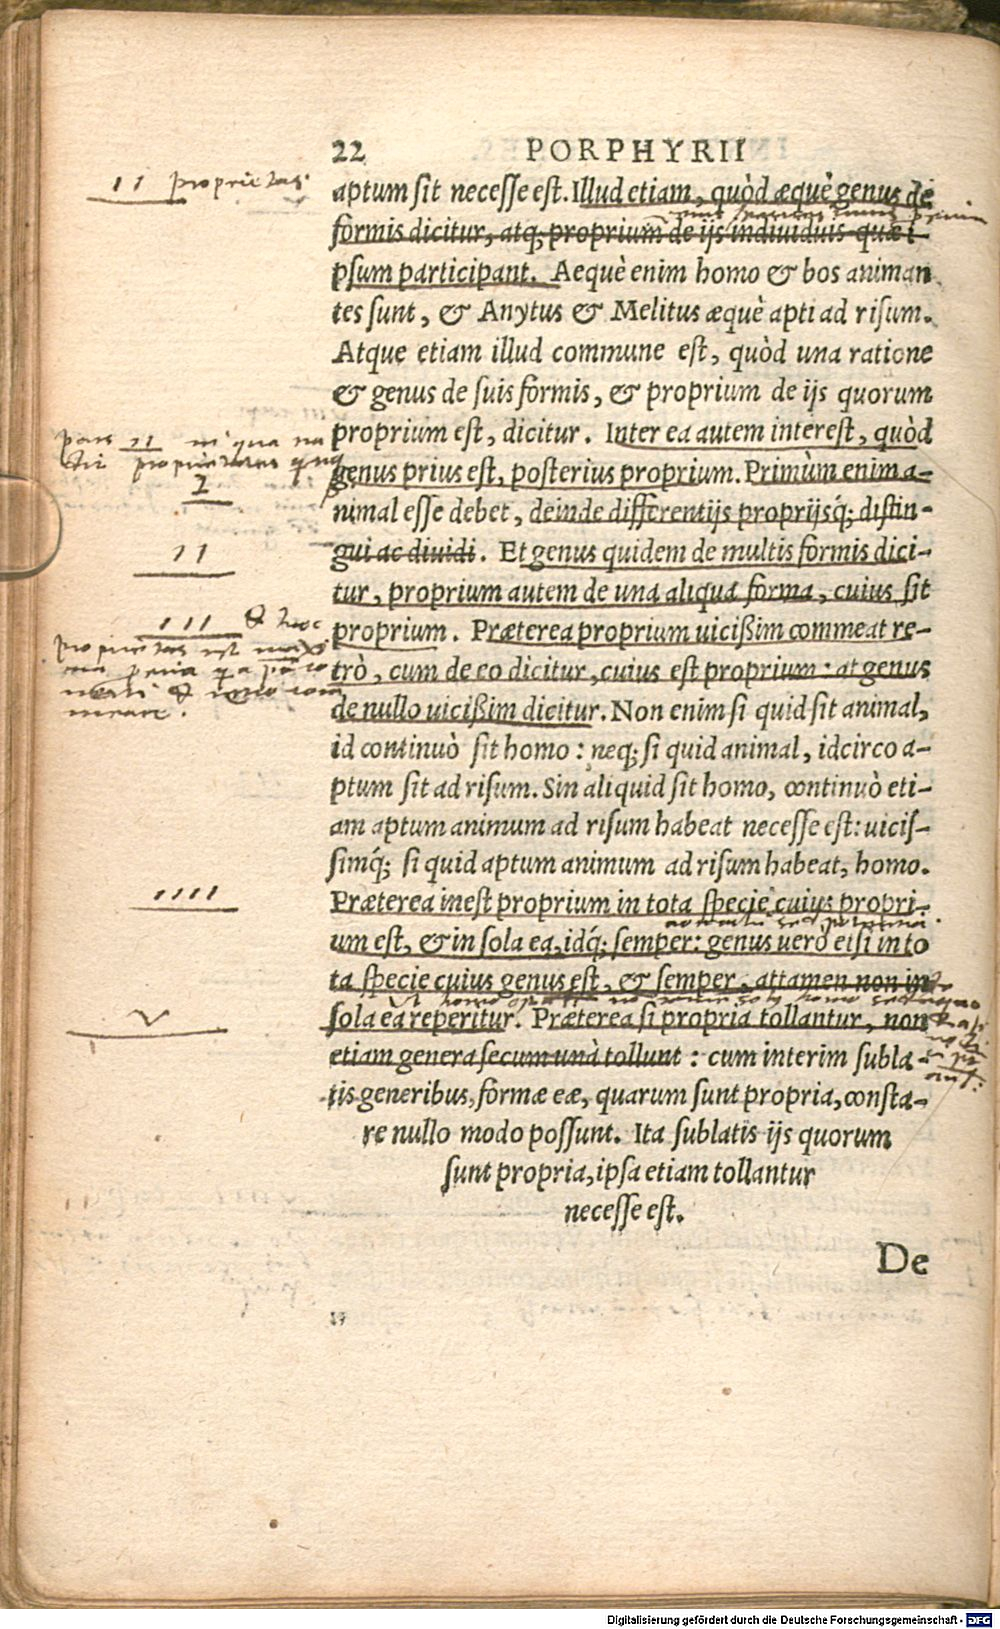 22 PORPHYRII
11 proprietas.
aptum sit necesse est. Illud etiam, quòd æquè genus de
formis dicitur, atq; proprium de ijs indiuiduis quæ i-
psum participant. Aequè enim homo & bos animan
tes sunt, & Anytus & Melitus æquè apti ad risum.
Atque etiam illud commune est, quòd una ratione
& genus de suis formis, & proprium de ijs quorum
pars 11 in qua
proprium est, dicitur. Inter ea autem interest, quòd
genus prius est, posterius proprium. Primùm enim a-
1
nimal esse debet, deinde differentijs proprijsq́; distin-
11
gui ac diuidi. Et genus quidem de multis formis dici-
tur, proprium autem de una aliqua forma, cuius sit
111 & hoc
proprium. Præterea proprium uicißim commeat re-
proprietas est
trò, cum de eo dicitur, cuius est proprium: at genus
meare.
de nullo uicißim dicitur. Non enim si quid sit animal,
id continuò sit homo: neq; si quid animal, idcirco a-
ptum sit ad risum. Sin aliquid sit homo, continuò eti-
am aptum animum ad risum habeat necesse est: uicis-
simq́; si quid aptum animum ad risum habeat, homo.
1111
Præterea inest proprium in tota specie cuius propri-
um est, & in sola ea, idq́; semper: genus uerò etsi in to
ta specie cuius genus est, & semper, attamen non in
V
sola ea reperitur. Præterea si propria tollantur, non
etiam genera secum unà tollunt: cum interim subla-
tis generibus, formæ eæ, quarum sunt propria, consta-
re nullo modo possunt. Ita sublatis ijs quorum
sunt propria, ipsa etiam tollantur
necesse est.
De
Digitalisierung gefördert durch die Deutsche Forschungsgemeinschaft - DFG